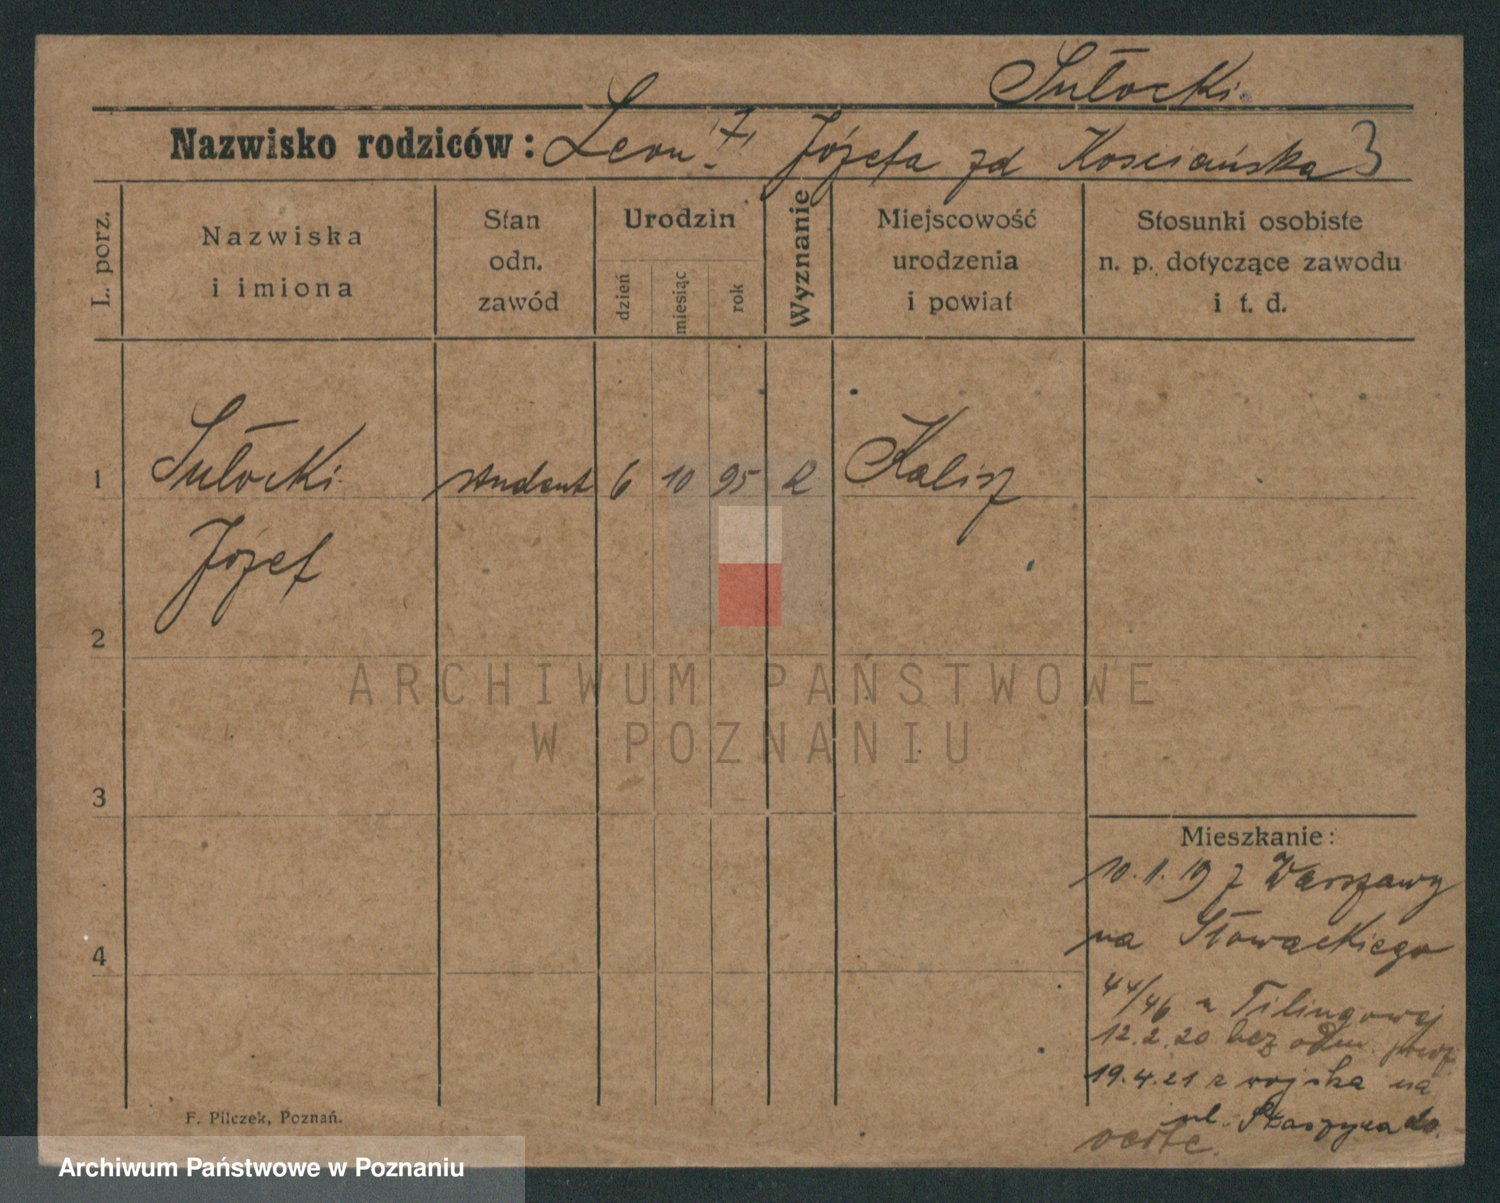 Sułocki.
Nazwisko rodziców: Leon i Józefa zd Kościańska 3
L. porz.
Nazwiska
i imiona
Stan
odn.
zawód
Urodzin
dzień
miesiąc
rok
Wyznanie
Miejscowość
urodzenia
i powiat
Stosunki osobiste
n. p. dotyczące zawodu
i t. d.
1 Sułocki student 6 10 95 R Kalisz
Józef
2
3
4
ARCHIWUM PAŃSTWOWE
W POZNANIU
Mieszkanie:
10.1.19 z Warszawy
na Słowackiego
44/46 u Tilingowej
12.2.20 bez odm.
19.4.21 z wojska na
ul. Staszyca
F. Pilczek, Poznań.
Archiwum Państwowe w Poznaniu